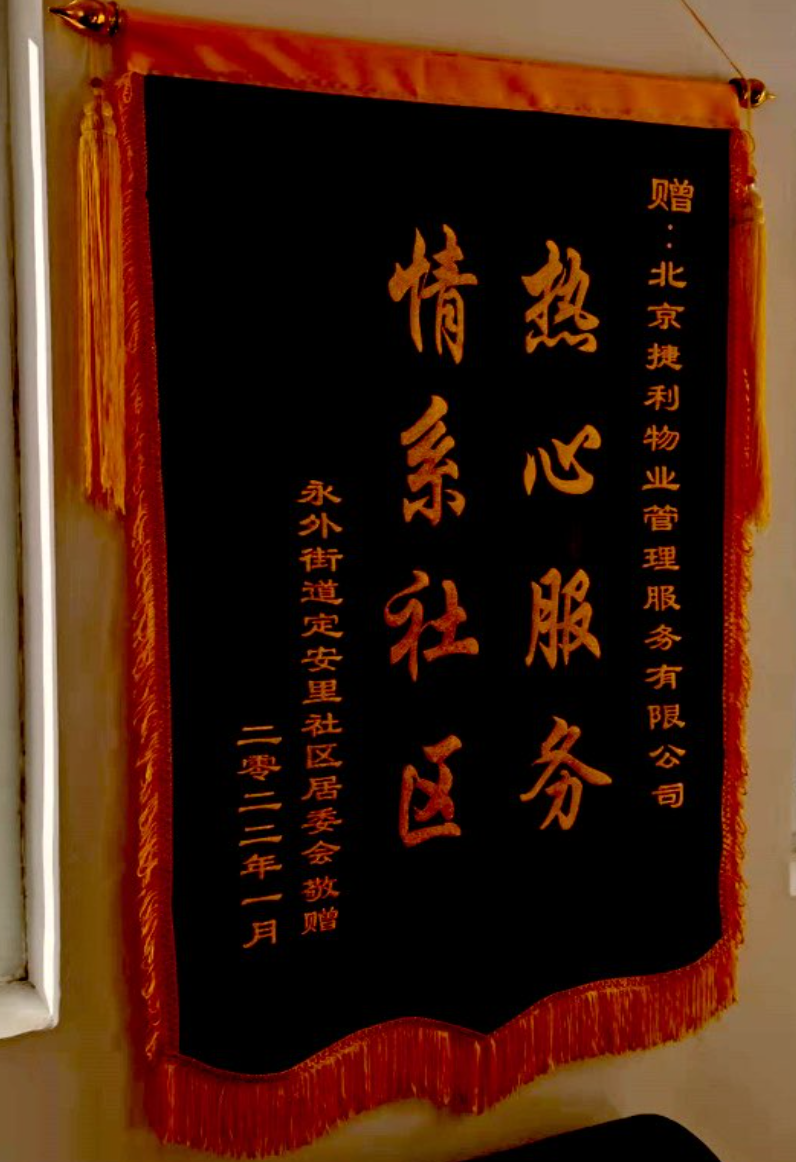 赠：北京捷利物业管理服务有限公司
热心服务
情系社区
永外街道定安里社区居委会敬赠
二零二二年一月